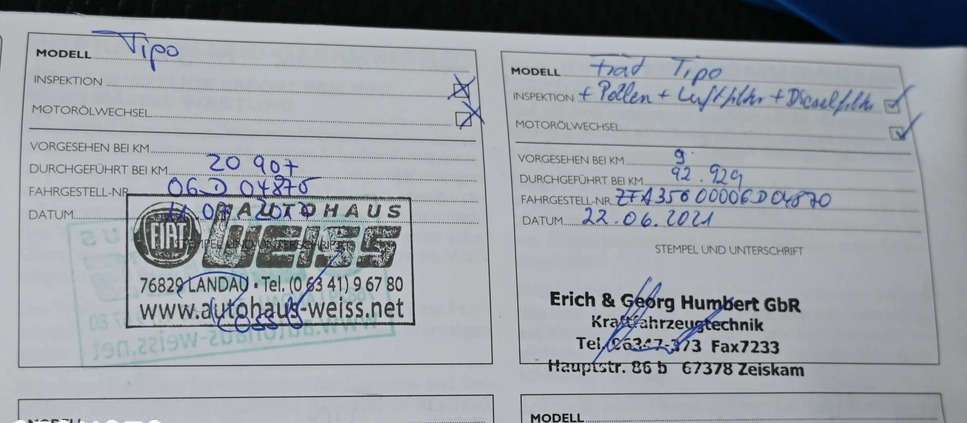 MODELL Tipo
INSPEKTION
MOTORÖLWECHSEL
VORGESEHEN BEI KM
DURCHGEFÜHRT BEI KM 20 907
FAHRGESTELL-NR. 06D 04870
DATUM
FIAT AUTOHAUS
WEISS
76829 LANDAU • Tel. (0 63 41) 9 67 80
www.autohaus-weiss.net
MODELL Fiad Tipo
INSPEKTION + Pollen + Luftfilter + Dieselfilter
MOTORÖLWECHSEL
VORGESEHEN BEI KM 9
DURCHGEFÜHRT BEI KM 92.929
FAHRGESTELL-NR. ZFA35600006D04870
DATUM 22.06.2021
STEMPEL UND UNTERSCHRIFT
Erich & Georg Humbert GbR
Kraftfahrzeugtechnik
Tel. 06347-373 Fax7233
Hauptstr. 86 b 67378 Zeiskam
MODELL